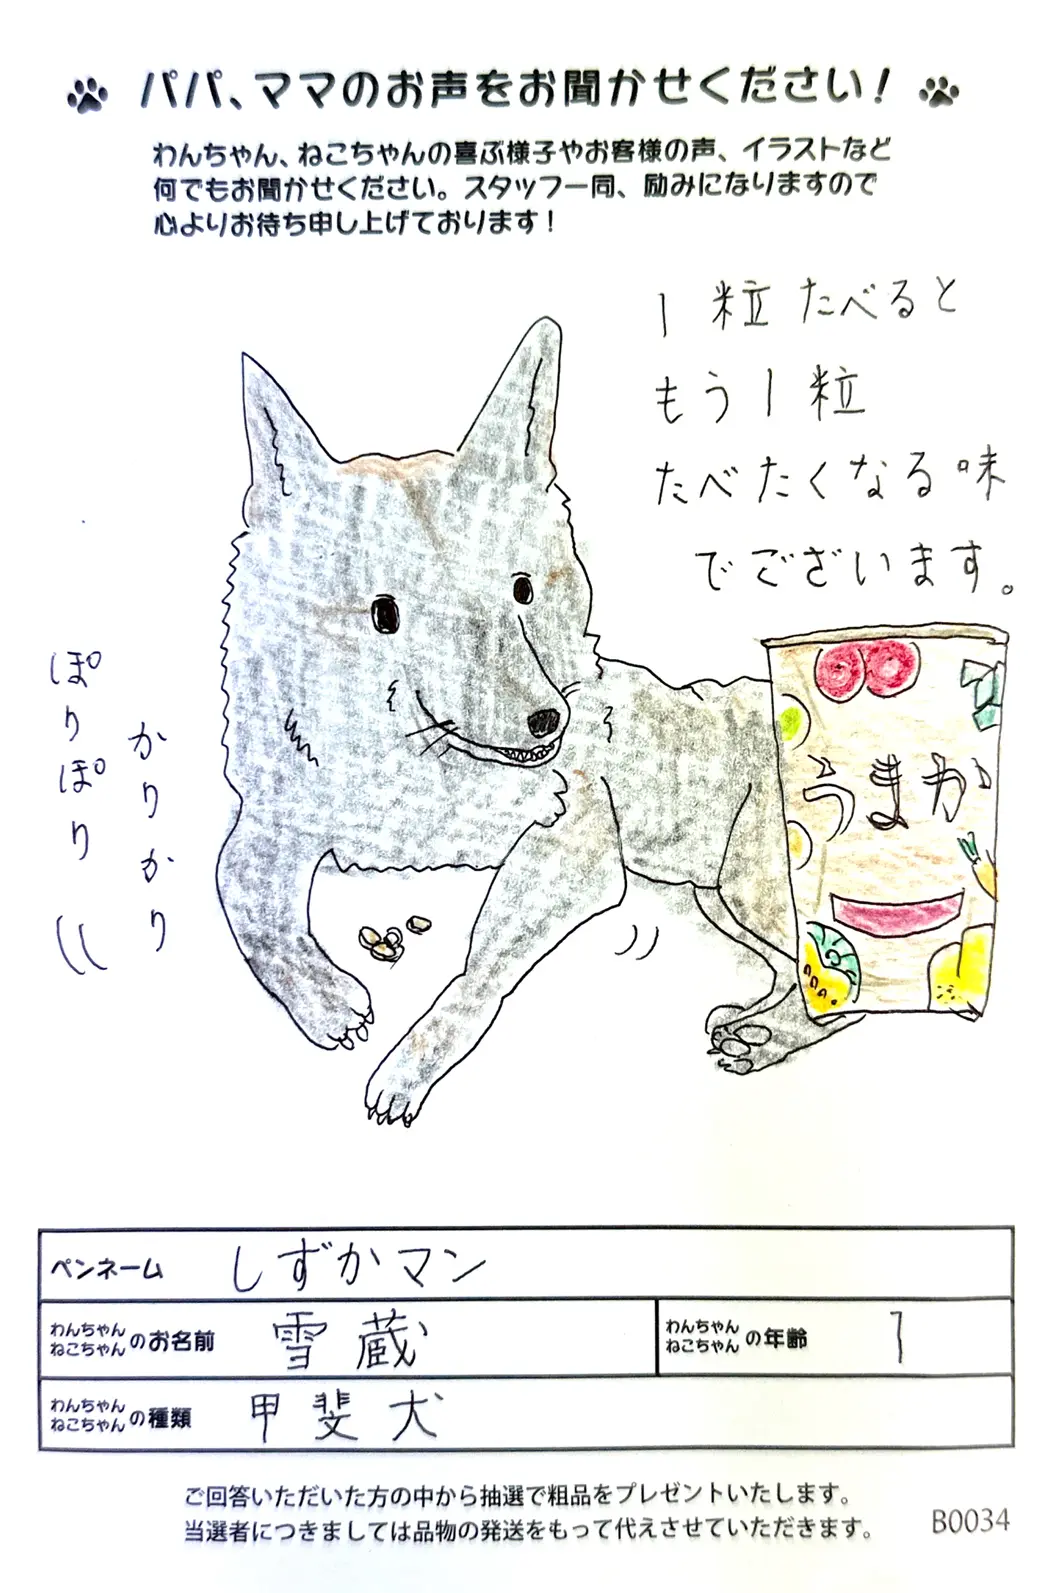 パパ、ママのお声をお聞かせください！
わんちゃん、ねこちゃんの喜ぶ様子やお客様の声、イラストなど
何でもお聞かせください。スタッフ一同、励みになりますので
心よりお待ち申し上げております！
1粒たべると
もう1粒
たべたくなる味
でございます。
かりかり
ぽりぽり
うまか
ペンネーム しずかマン
わんちゃん
ねこちゃん のお名前 雪蔵
わんちゃん
ねこちゃん の年齢 1
わんちゃん
ねこちゃん の種類 甲斐犬
ご回答いただいた方の中から抽選で粗品をプレゼントいたします。
当選者につきましては品物の発送をもって代えさせていただきます。
B0034